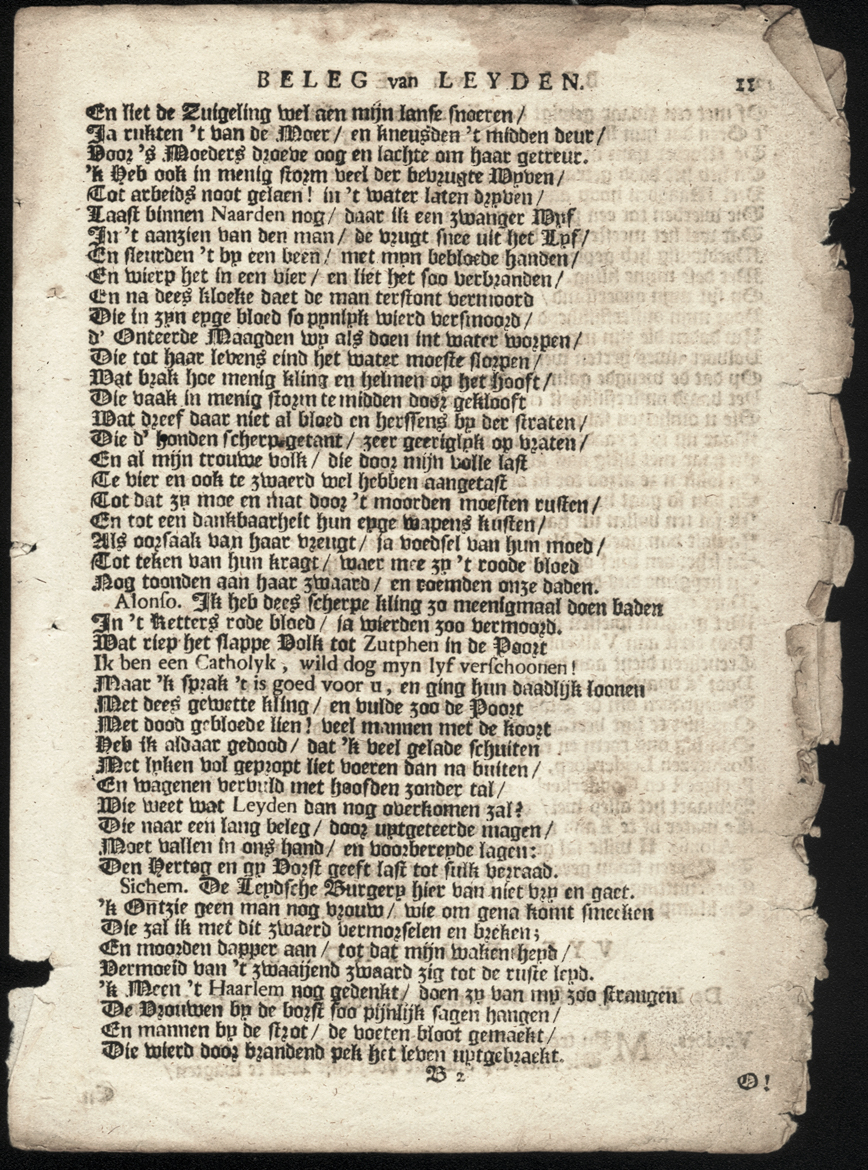 BELEG van LEYDEN. 11
En liet de Zuigeling wel aen mijn lanse snoeren/
Ja rukten 't van de Moer/ en kneusden 't midden deur/
Voor 's Moeders droeve oog en lachte om haar getreur.
'k Heb ook in menig storm veel der bevrugte Wyven/
Tot arbeids noot gelaen! in 't water laten dryven/
Laast binnen Naarden nog/ daar ik een zwanger Wyf
In 't aanzien van den man/ de vrugt snee uit het Lyf/
En sleurden 't by een been/ met myn bebloede handen/
En wierp het in een vier/ en liet het soo verbranden/
En na dees kloeke daet de man terstont vermoord
Die in zyn eyge bloed so pynlyk wierd versmoord/
d' Onteerde Maagden wy als doen int water worpen/
Die tot haar levens eind het water moeste slorpen/
Wat brak hoe menig kling en helmen op het hooft/
Die vaak in menig storm te midden door geklooft
Wat dreef daar niet al bloed en herssens by der straten/
Die d' honden scherp getant/ zeer geeriglyk op vraten/
En al mijn trouwe volk/ die door mijn volle last
Te vier en ook te zwaerd wel hebben aangetast
Tot dat zy moe en mat door 't moorden moesten rusten/
En tot een dankbaarheit hun eyge wapens kusten/
Als oorsaak van haar vreugt/ ja voedsel van hun moed/
Tot teken van hun kragt/ waer mee zy 't roode bloed
Nog toonden aan haar zwaard/ en roemden onze daden.
Alonso. Ik heb dees scherpe kling zo meenigmaal doen baden
In 't Ketters rode bloed/ ja wierden zoo vermoord.
Wat riep het slappe Volk tot Zutphen in de Poort
Ik ben een Catholyk, wild dog myn lyf verschoonen!
Maar 'k sprak 't is goed voor u, en ging hun daadlijk loonen
Met dees gewette kling/ en vulde zoo de Poort
Met dood gebloede lien! veel mannen met de koort
Heb ik aldaar gedood/ dat 'k veel gelade schuiten
Met lyken vol gepropt liet voeren dan na buiten/
En wagenen vervuld met hoofden zonder tal/
Wie weet wat Leyden dan nog overkomen zal?
Die naar een lang beleg/ door uytgeteerde magen/
Moet vallen in ons hand/ en voorbereyde lagen:
Den Hertog en gy Vorst geeft last tot sulk verraad.
Sichem. De Leydsche Burgery hier van niet vry en gaet.
'k Ontzie geen man nog vrouw/ wie om gena komt smeeken
Die zal ik met dit zwaerd vermorselen en breken;
En moorden dapper aan/ tot dat mijn wakentheyd/
Vermoeid van 't zwaaijend zwaard zig tot de ruste leyd.
'k Meen 't Haarlem nog gedenkt/ doen zy van my zoo strangen
De Vrouwen by de borst soo pijnlijk sagen hangen/
En mannen by de strot/ de voeten bloot gemaekt/
Die wierd door brandend pek het leven uytgebraekt.
B 2
O!